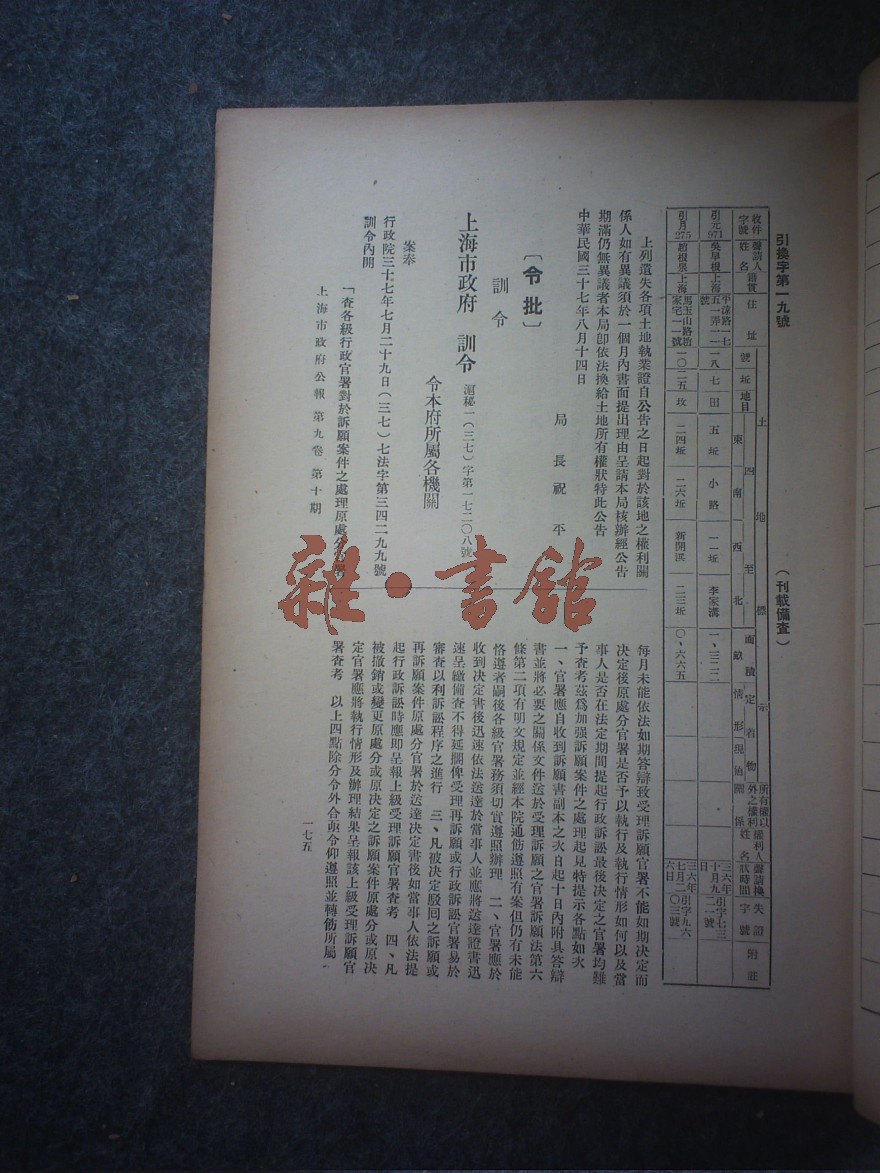 引換字第一九號
(刊載備查)
收件字號
聲請人姓名
籍貫
住址
土地標示
號坵
地目
四至
東
南
西
北
面積
畝
定着物
情形
現值
所有權以外之權利關係
權利人姓名
聲請換狀時間
失證字號
附註
引元071
上海
一八七
田
五坵
小路
一一坵
李家溝
一、三二二
三六年十月九日
引字七三二一號
引月275
上海
一〇二五
坟
二四坵
二六坵
新開浜
二三坵
〇、六六五
三六年七月二六日
引字九六〇三號
上列遺失各項土地執業證自公告之日起對於該地之權利關
係人如有異議須於一個月內書面提出理由呈請本局核辦經公告
期滿仍無異議者本局卽依法換給土地所有權狀特此公告
中華民國三十七年八月十四日
局長祝平
〔令批〕
訓令
上海市政府 訓令 滬秘一(三七)字第一七二〇八號
令本府所屬各機關
案奉
行政院三十七年七月二十九日(三七)七法字第三四二九九號
訓令內開
「查各級行政官署對於訴願案件之處理原處分官署
每月未能依法如期答辯致受理訴願官署不能如期決定而
決定後原處分官署是否予以執行及執行情形如何以及當
事人是否在法定期間提起行政訴訟最後決定之官署均難
予查考茲爲加强訴願案件之處理起見特提示各點如次
一、官署應自收到訴願書副本之次日起十日內附具答辯
書並將必要之關係文件送於受理訴願之官署訴願法第六
條第二項有明文規定並經本院通飭遵照有案但仍有未能
恪遵者嗣後各級官署務須切實遵照辦理 二、官署應於
收到決定書後迅速依法送達於當事人並應將送達證書迅
速呈繳備查不得延擱俾受理再訴願或行政訴訟官署易於
審查以利訴訟程序之進行 三、凡被決定駁回之訴願或
再訴願案件原處分官署於送達決定書後如當事人依法提
起行政訴訟時應即呈報上級受理訴願官署查考 四、凡
被撤銷或變更原處分或原決定之訴願案件原處分或原決
定官署應將執行情形及辦理結果呈報該上級受理訴願官
署查考 以上四點除分令外合亟令仰遵照並轉飭所屬
上海市政府公報 第九卷 第十期
一七五
雜·書館